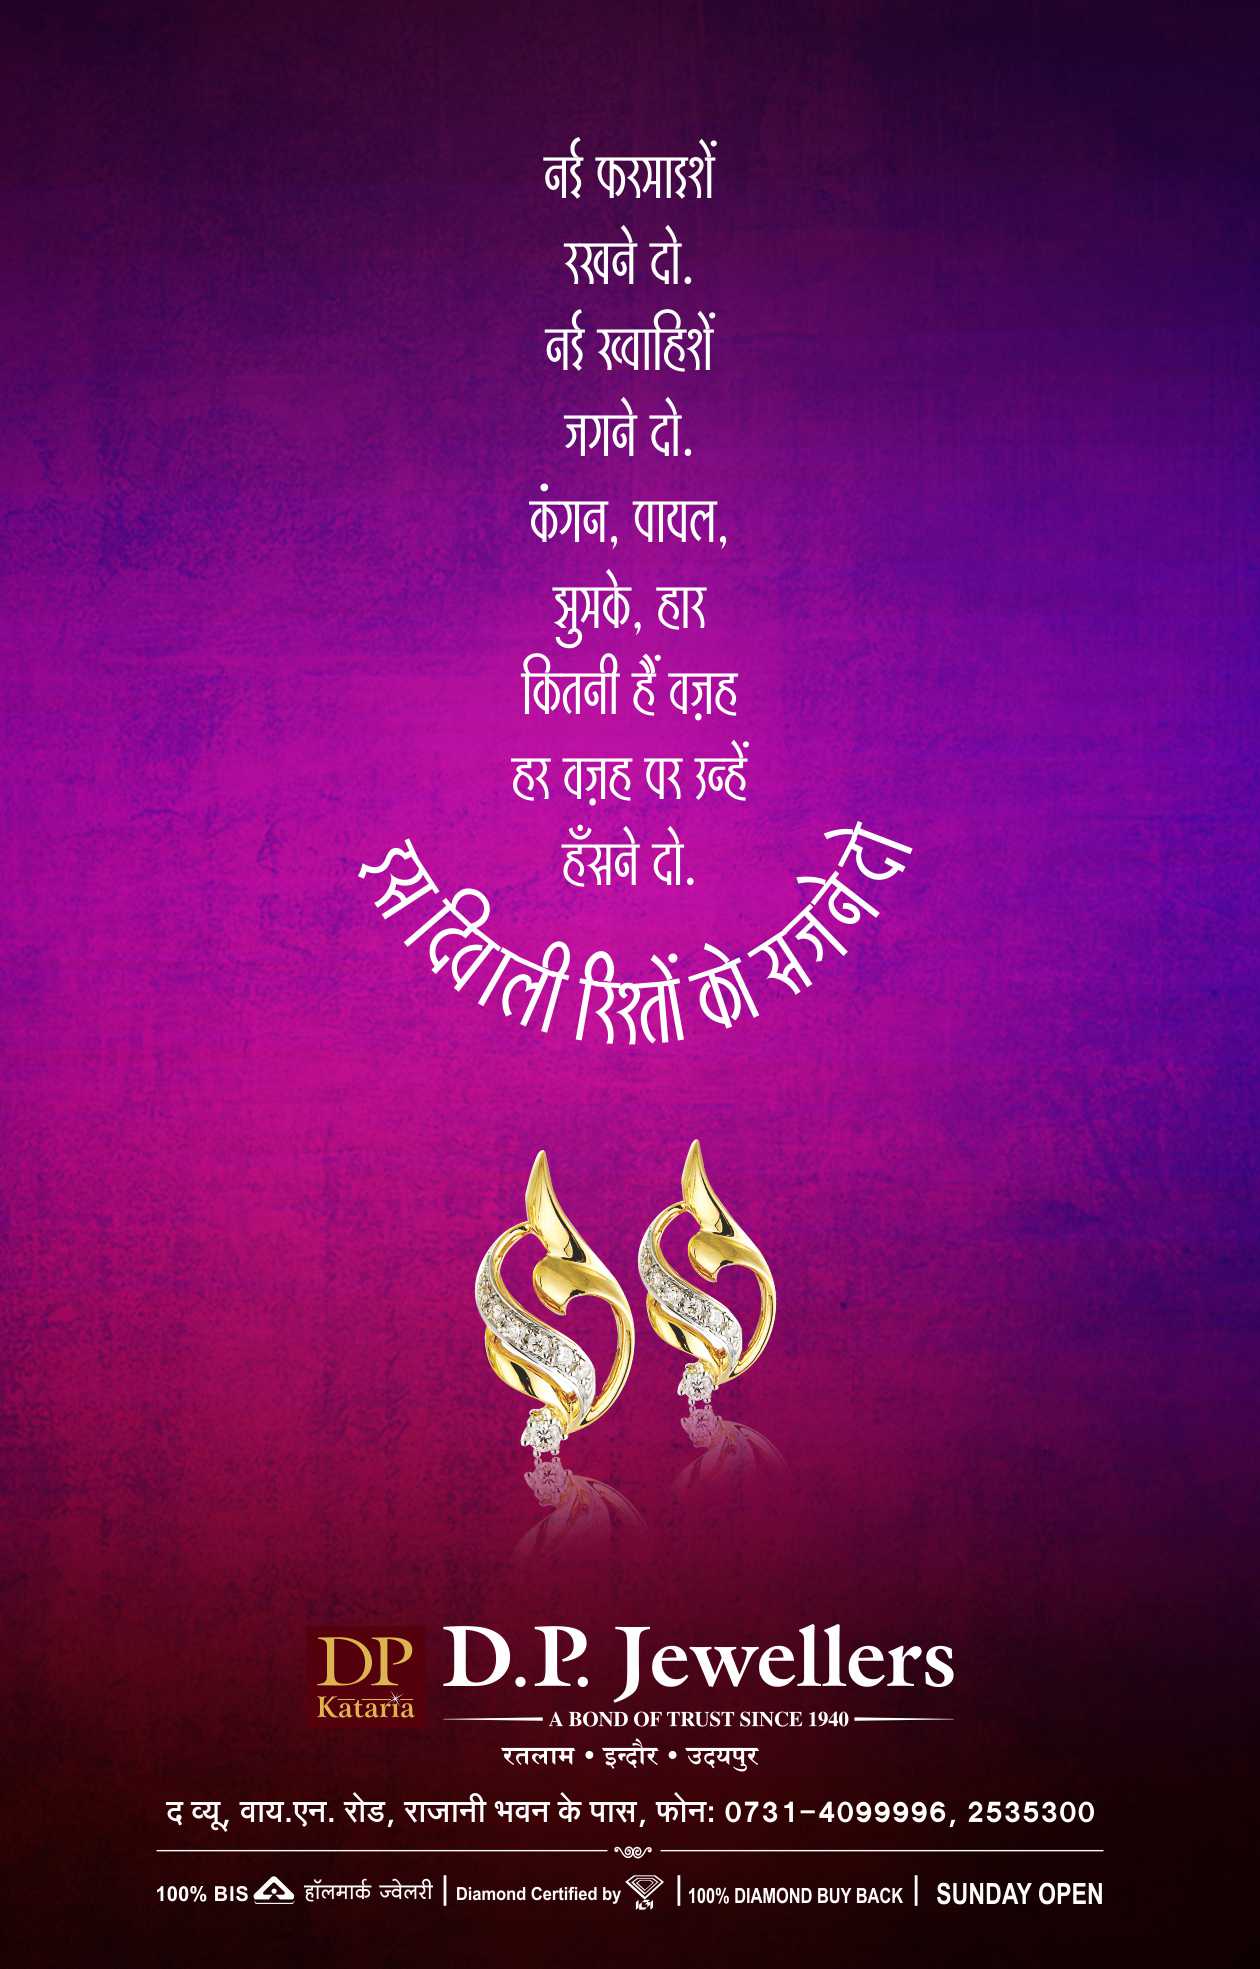 नई फरमाइशें
रखने दो.
नई ख्वाहिशें
जगने दो.
कंगन, पायल,
झुमके, हार
कितनी हैं वज़ह
हर वज़ह पर उन्हें
हँसने दो.
इस दिवाली रिश्तों को सजने दो
DP
Kataria
D.P. Jewellers
A BOND OF TRUST SINCE 1940
रतलाम • इन्दौर • उदयपुर
द व्यू, वाय.एन. रोड, राजानी भवन के पास, फोन: 0731-4099996, 2535300
100% BIS हॉलमार्क ज्वेलरी | Diamond Certified by IGI | 100% DIAMOND BUY BACK | SUNDAY OPEN